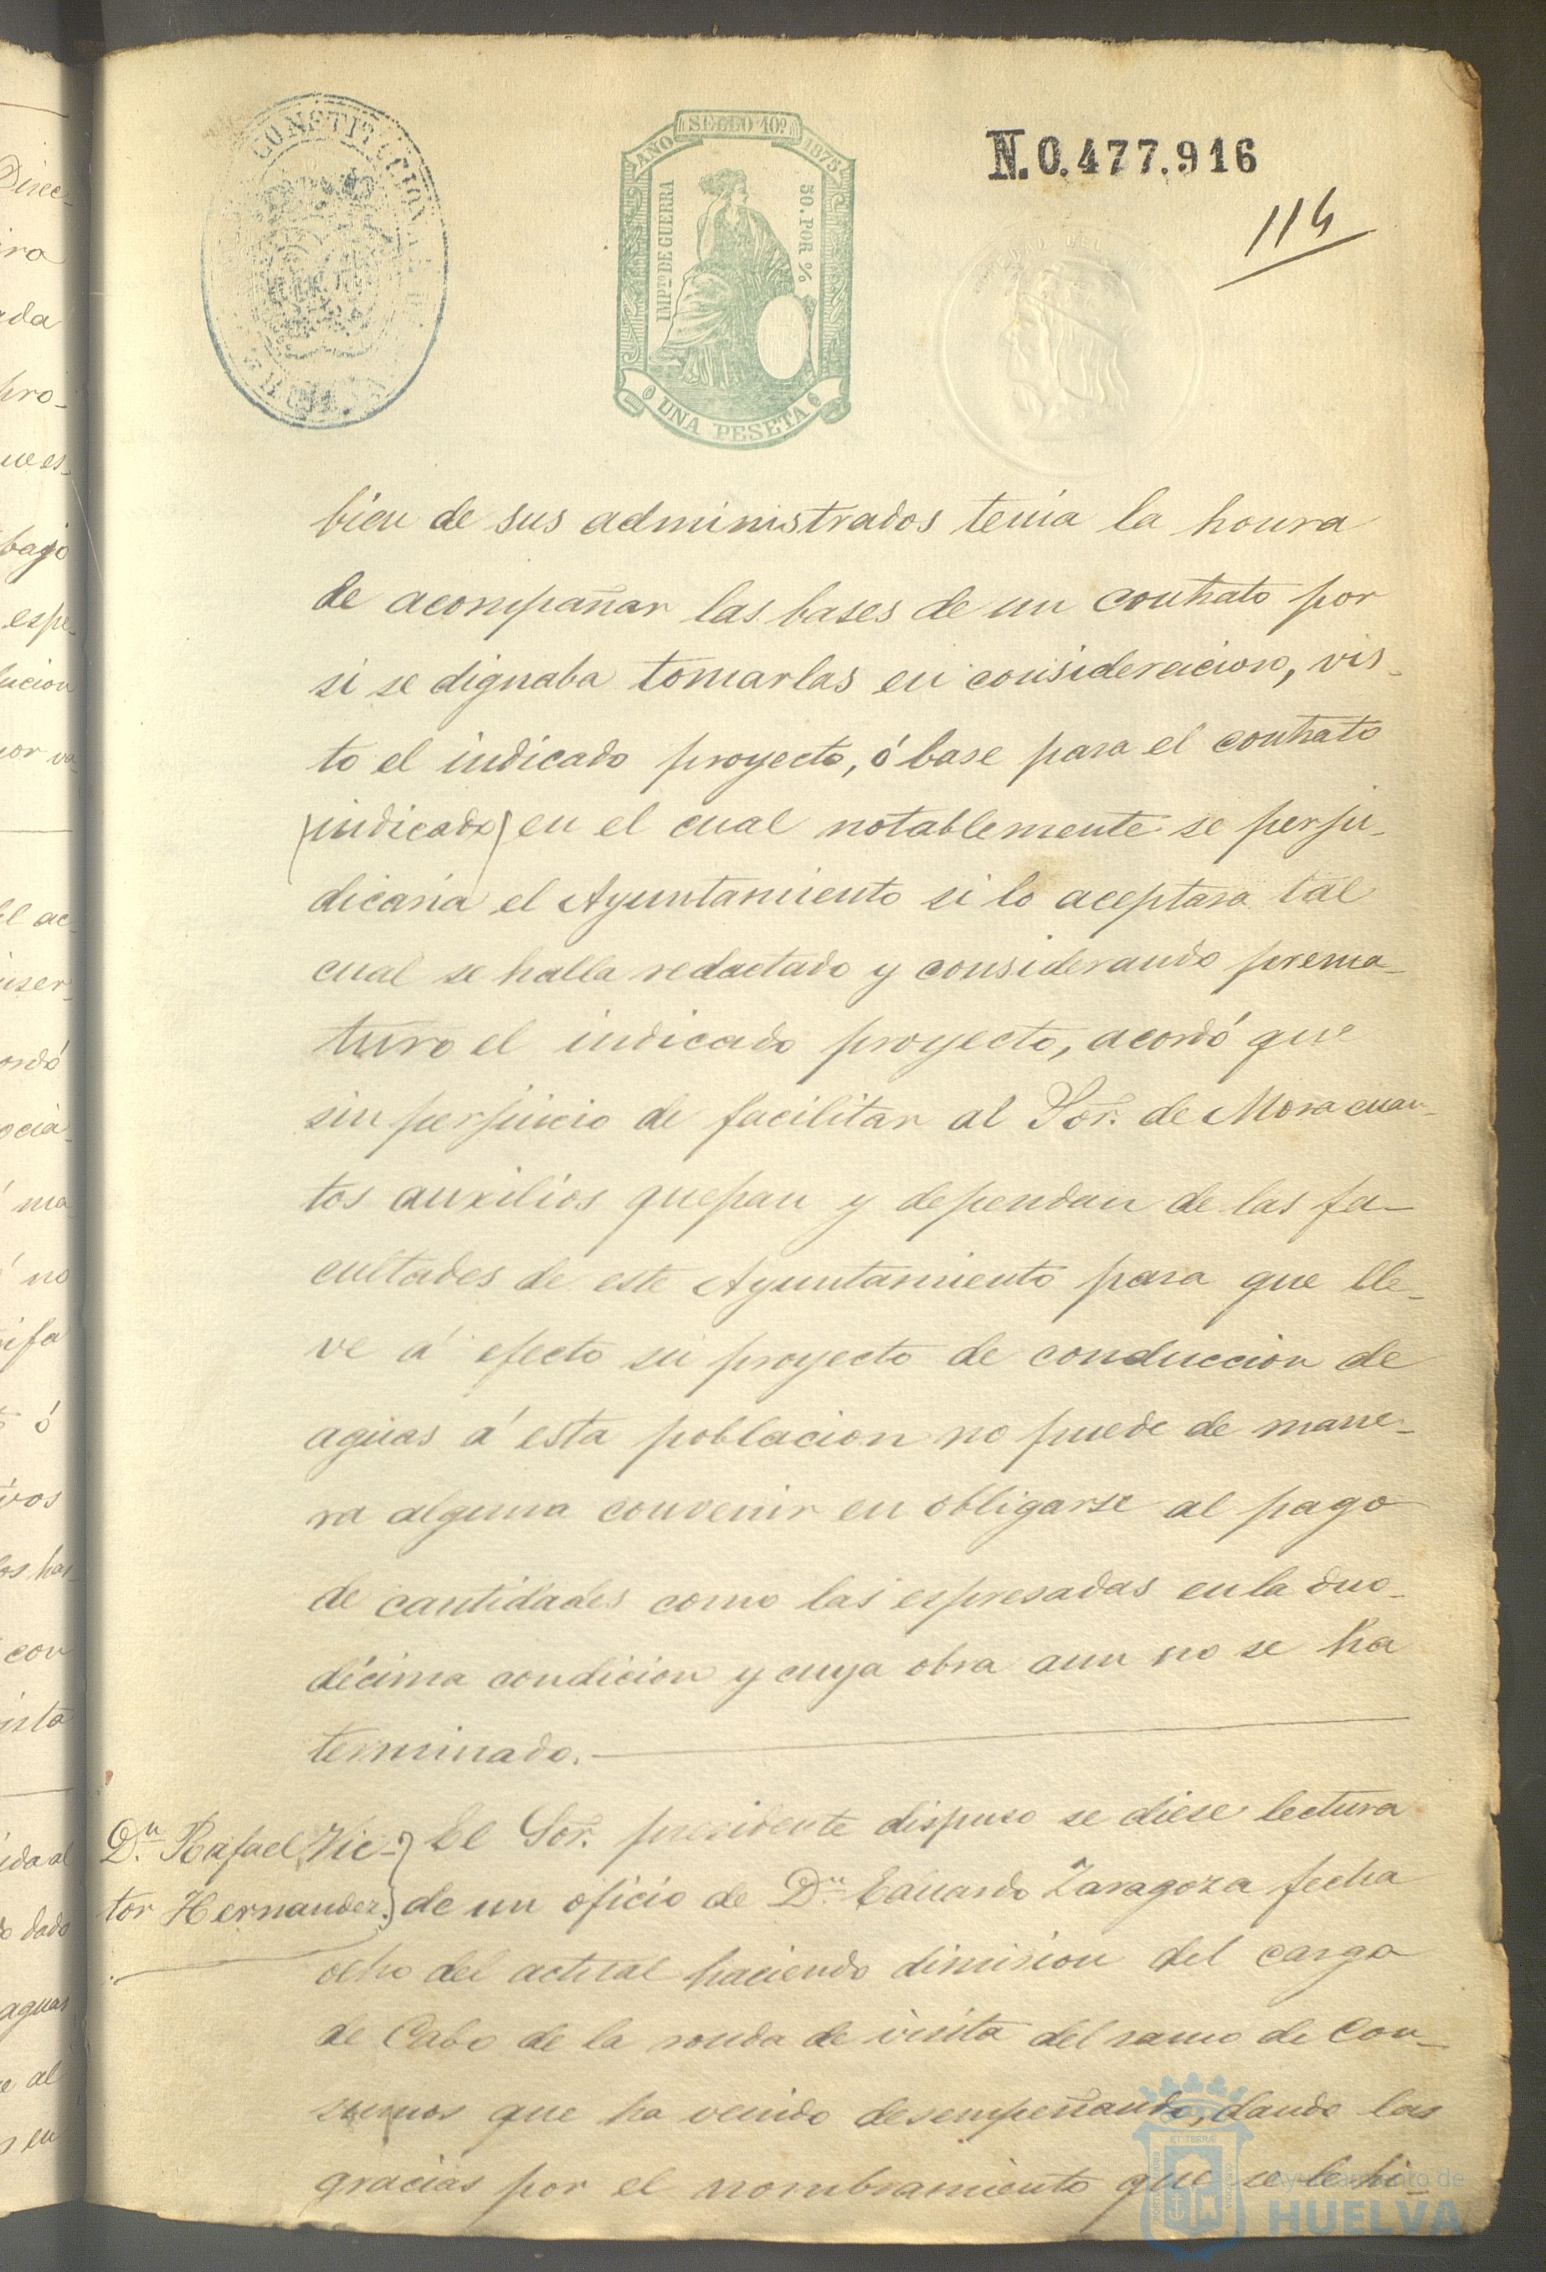 CONSTITUCIONAL
HUELVA
SELLO 10º
AÑO 1875
IMPTO DE GUERRA
50 POR %
UNA PESETA
N.0.477.916
114
bien de sus administrados tenia la honra
de acompañar las bases de un contrato por
si se dignaba tomarlas en consideracion, vis-
to el indicado proyecto, ó base para el contrato
(indicado) en el cual notablemente se perju-
dicaria el Ayuntamiento si lo aceptara tal
cual se halla redactado y considerando prema-
turo el indicado proyecto, acordó que
sin perjuicio de facilitar al Sor. de Mora cuan-
tos auxilios quepan y dependan de las fa-
cultades de este Ayuntamiento para que lle-
ve á efecto su proyecto de conduccion de
aguas á esta poblacion no puede de mane-
ra alguna convenir en obligarse al pago
de cantidades como las espresadas en la duo-
décima condicion y cuya obra aun no se ha
terminado.
Dn. Rafael Vic-
tor Hernandez.
El Sor. presidente dispuso se diese lectura
de un oficio de Dn. Eduardo Zaragoza fecha
ocho del actual haciendo dimision del cargo
de Cabo de la ronda de visita del ramo de Con-
sumos que ha venido desempeñando, dando las
gracias por el nombramiento que se le hi-
Ayuntamiento de
HUELVA